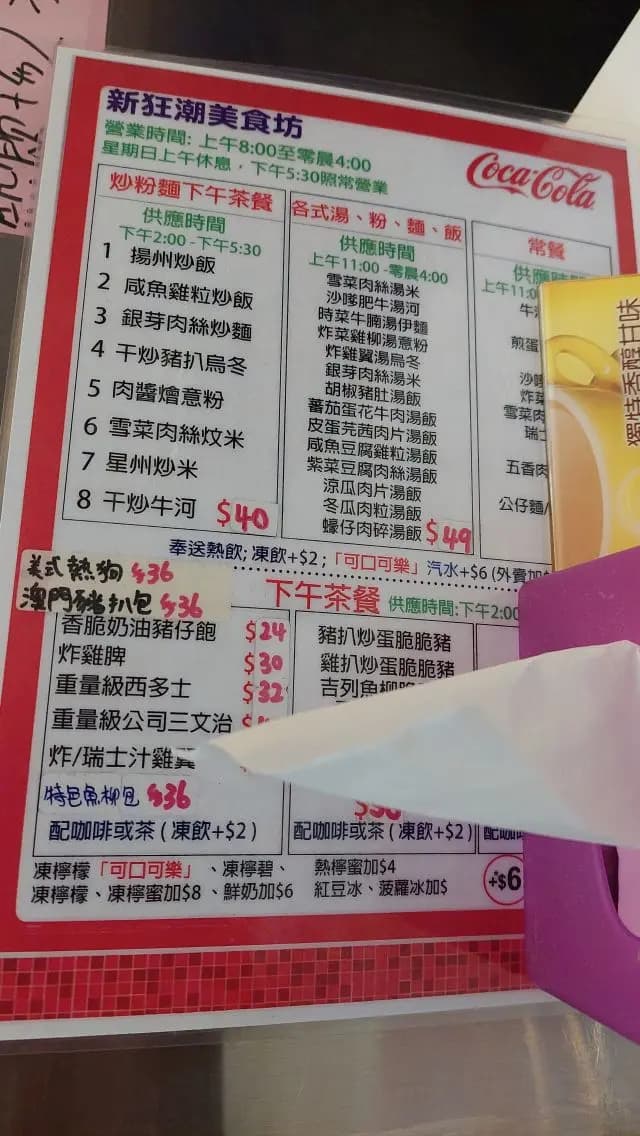 新狂潮美食坊
營業時間: 上午8:00至零晨4:00
星期日上午休息，下午5:30照常營業
Coca-Cola
炒粉麵下午茶餐
供應時間
下午2:00 - 下午5:30
1 揚州炒飯
2 咸魚雞粒炒飯
3 銀芽肉絲炒麵
4 干炒豬扒烏冬
5 肉醬燴意粉
6 雪菜肉絲炆米
7 星州炒米
8 干炒牛河 $40
各式湯、粉、麵、飯
供應時間
上午11:00 -零晨4:00
雪菜肉絲湯米
沙嗲肥牛湯河
時菜牛腩湯伊麵
炸菜雞柳湯意粉
炸雞翼湯烏冬
銀芽肉絲湯米
胡椒豬肚湯飯
蕃茄蛋花牛肉湯飯
皮蛋芫茜肉片湯飯
咸魚豆腐雞粒湯飯
紫菜豆腐肉絲湯飯
涼瓜肉片湯飯
冬瓜肉粒湯飯
蠔仔肉碎湯飯 $49
常餐
供應時間
上午11:0
牛
煎蛋
沙嗲
炸菜
雪菜肉
瑞士
五香肉
公仔麵/
奉送熱飲; 凍飲+$2 ;「可口可樂」汽水+$6 (外賣加
美式熱狗 $36
澳門豬扒包 $36
下午茶餐 供應時間:下午2:00
香脆奶油豬仔飽 $24
炸雞脾 $30
重量級西多士 $32
重量級公司三文治
炸/瑞士汁雞翼
特色魚柳包 $36
配咖啡或茶 ( 凍飲+$2 )
豬扒炒蛋脆脆豬
雞扒炒蛋脆脆豬
吉列魚柳
配咖啡或茶 ( 凍飲+$2 )
配咖啡
凍檸檬「可口可樂」、凍檸碧、 熱檸蜜加$4
凍檸檬、凍檸蜜加$8 、鮮奶加$6 紅豆冰、菠蘿冰加$
+$6
獨特香醇甘味